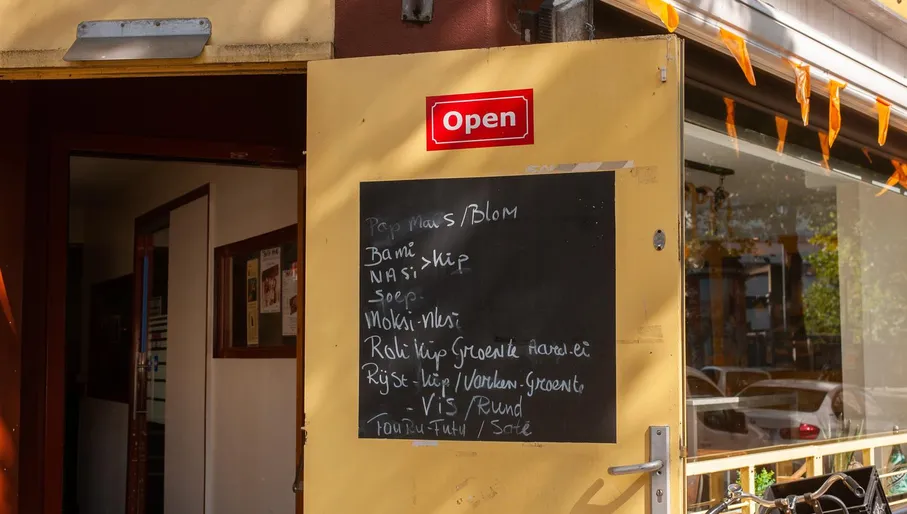 Open
Pap Mais/BLOM
Bami
NASi >kip
Soep
Moksi-Mesi
Roti kip Groente Aard.ei
RijSt-kip/Varken-Groente
-ViS/Rund
/ Saté